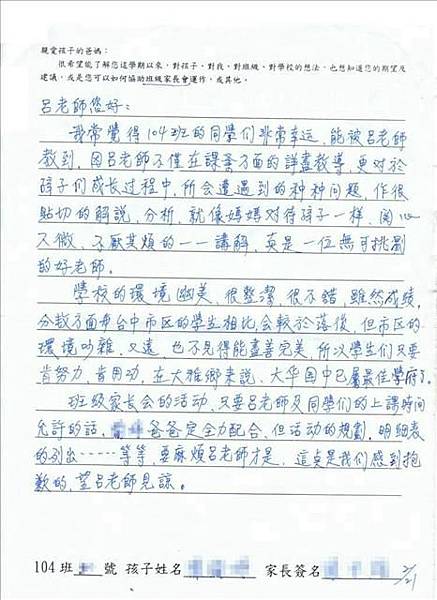 親愛孩子的爸媽：
很希望能了解您這學期以來，對孩子、對我、對班級、對學校的想法，也想知道您的期望及
建議，或是您可以如何協助班級家長會運作，或其他。
呂老師您好：
我常覺得104班的同學们非常幸运，能被呂老師
教到，因呂老師不僅在課業方面的詳盡教導，更对於
孩子们成长过程中，所会遭遇到的种种问题，作很
貼切的解說，分析，就像媽媽对待孩子一样，関心
入微、不厭其煩的一一講解，真是一位無可挑剔
的好老師。
學校的環境幽美、很整潔，很不錯，雖然成績，
分数方面和台中市区的學生相比会較於落後，但市区的
環境吵雜，又遠，也不見得能盡善完美，所以學生们只要
肯努力，肯用功，在大雅鄉来說、大华国中已屬最佳學府了。
班级家长会的活动，只要呂老師及同學们的上課時间
允許的話，爸爸定全力配合、但活动的規劃，明细表
的列出……等等，要麻煩呂老師才是，這点是我们感到抱
歉的，望呂老師見諒。
104班 號 孩子姓名 家長簽名 2/21